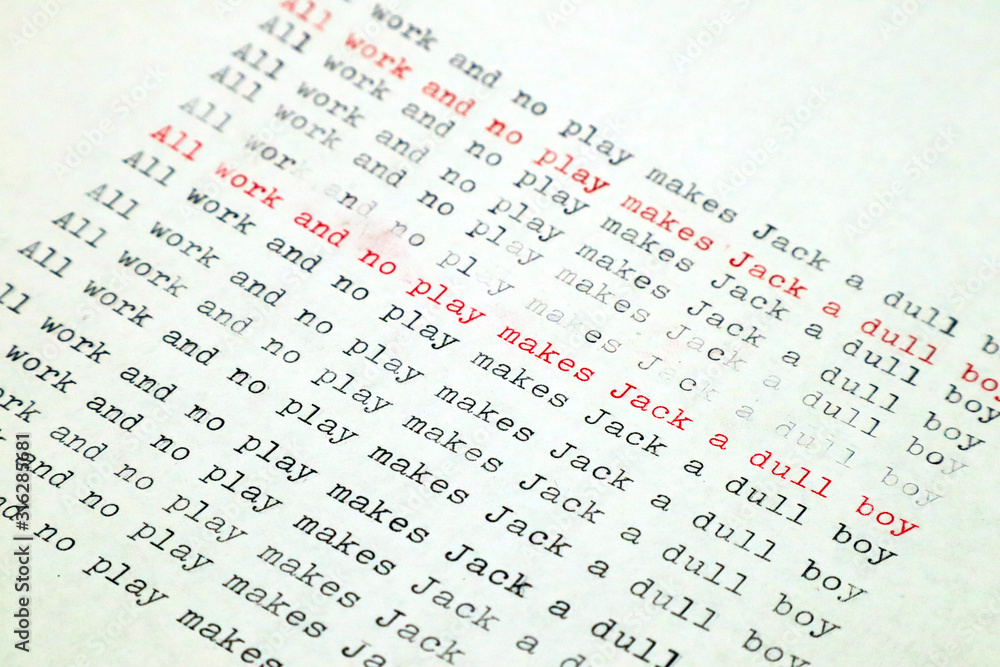 work and no play makes Jack a dull b
All work and no play makes Jack a dull bo
All work and no play makes Jack a dull boy
All work and no play makes Jack a dull boy
All work and no play makes Jack a dull boy
All work and no play makes Jack a dull boy
All work and no play makes Jack a dull boy
All work and no play makes Jack a dull boy
All work and no play makes Jack a dull boy
All work and no play makes Jack a dull boy
All work and no play makes Jack a dull boy
ll work and no play makes Jack a dull
work and no play makes Jack a d
ork and no play makes Jack
and no play makes Ja
d no play makes
Adobe Stock | #316285681